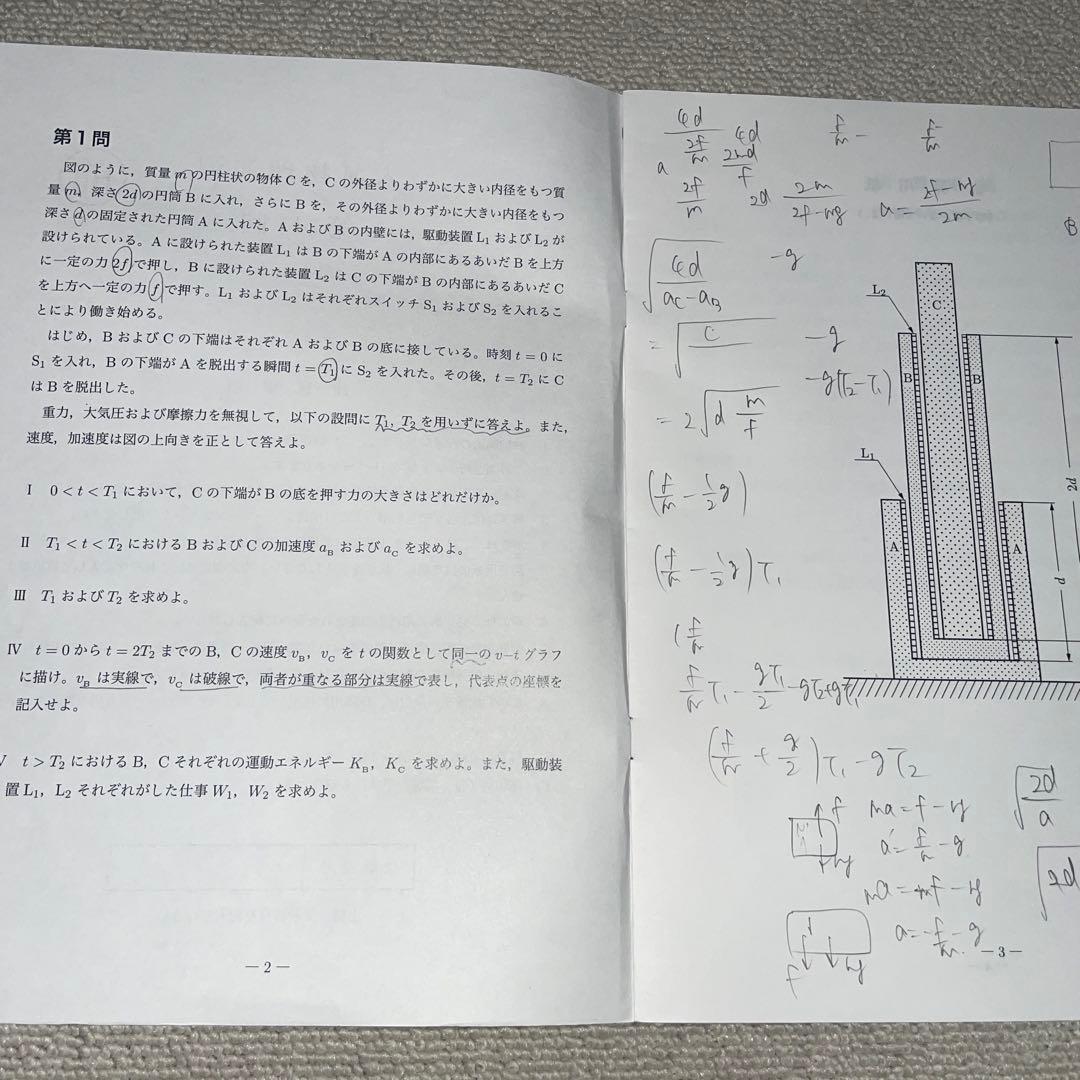 第1問
図のように，質量 m の円柱状の物体 C を，C の外径よりわずかに大きい内径をもつ質
量 m，深さ 2d の円筒 B に入れ，さらに B を，その外径よりわずかに大きい内径をもつ
深さ d の固定された円筒 A に入れた。A および B の内壁には，駆動装置 L₁ および L₂ が
設けられている。A に設けられた装置 L₁ は B の下端が A の内部にあるあいだ B を上方
に一定の力 2f で押し，B に設けられた装置 L₂ は C の下端が B の内部にあるあいだ C
を上方へ一定の力 f で押す。L₁ および L₂ はそれぞれスイッチ S₁ および S₂ を入れるこ
とにより働き始める。
はじめ，B および C の下端はそれぞれ A および B の底に接している。時刻 t = 0 に
S₁ を入れ，B の下端が A を脱出する瞬間 t = T₁ に S₂ を入れた。その後，t = T₂ に C
は B を脱出した。
重力，大気圧および摩擦力を無視して，以下の設問に T₁, T₂ を用いずに答えよ。また，
速度，加速度は図の上向きを正として答えよ。
I 0 < t < T₁ において，C の下端が B の底を押す力の大きさはどれだけか。
II T₁ < t < T₂ における B および C の加速度 a_B および a_C を求めよ。
III T₁ および T₂ を求めよ。
IV t = 0 から t = 2T₂ までの B，C の速度 v_B，v_C を t の関数として同一の v–t グラフ
に描け。v_B は実線で，v_C は破線で，両者が重なる部分は実線で表し，代表点の座標を
記入せよ。
V t > T₂ における B，C それぞれの運動エネルギー K_B，K_C を求めよ。また，駆動装
置 L₁，L₂ それぞれがした仕事 W₁，W₂ を求めよ。
— 2 —
4d
2f/m
4d
2md/f
f/m −
f/m
a
2f/m
2d
2m/2f−mg
a = 2f−mg/2m
B
√4d/a_C−a_B
−g
= √C
−g
−g(T₂−T₁)
= 2√d m/f
(f/m − 1/2 g)
(f/m − 1/2 g) T₁
(f/m
f/m T₁ − gT₁/2 − gT₂+gT₁
(f/m + g/2) T₁ − gT₂
L₂
C
B
B
L₁
A
A
2d
d
f
mg
ma = f − mg
a = f/m − g
a = −f/m − g
f
mg
√2d/a
— 3 —